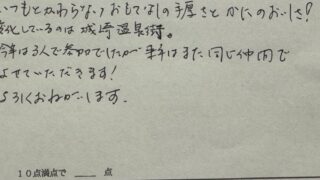 いつもとかわらないおもてなしの手厚さとかにのおいしさ!
変化しているのは城崎温泉街。
今年は3人で参加でしたが来年はまた同じ仲間で
よせていただきます!
よろしくおねがいします。
10点満点で ___ 点